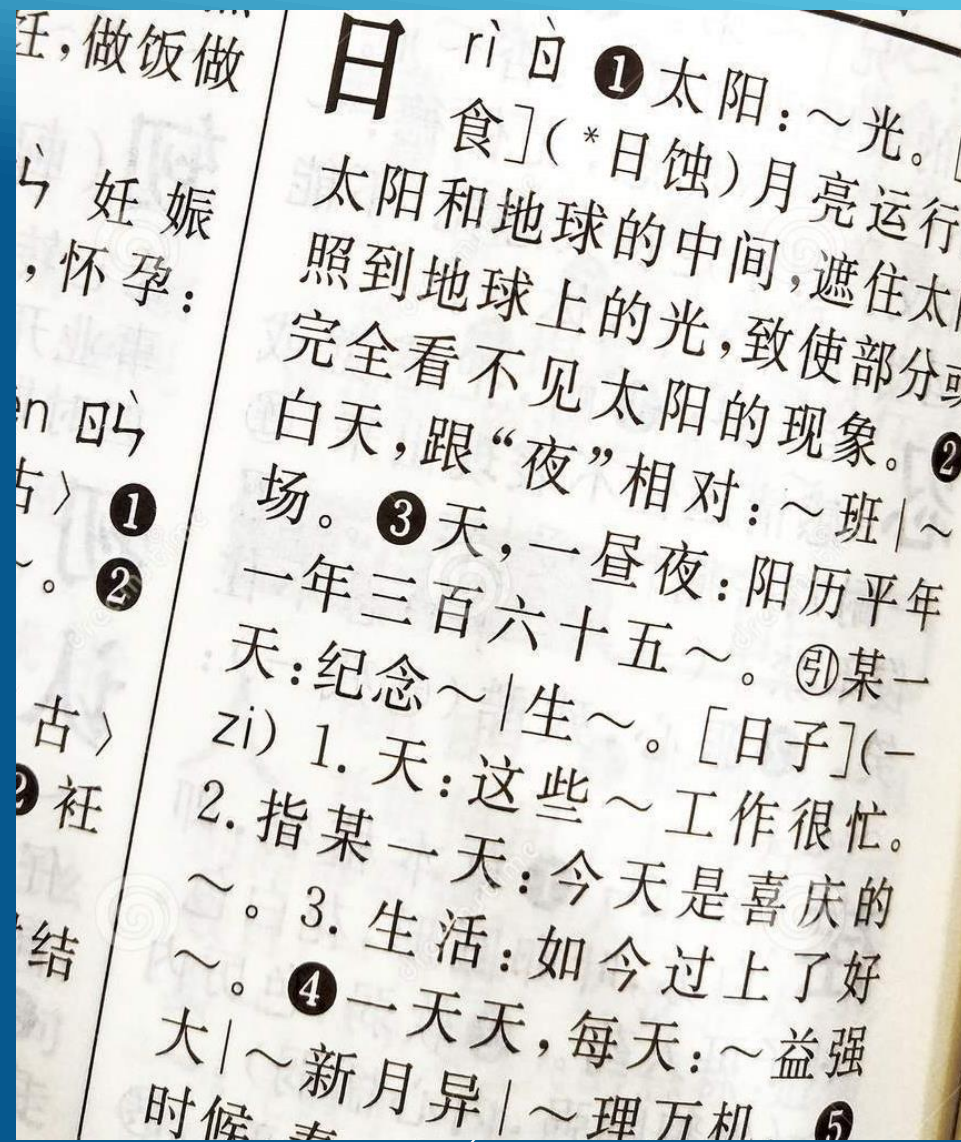 饪,做饭做
ㄣˋ 妊娠
,怀孕:
en ㄖㄣˋ
古〉❶
～。❷
古〉
❷衽
结
日 rì ㄖˋ ❶太阳:～光。[
食](*日蚀)月亮运行
太阳和地球的中间,遮住太
照到地球上的光,致使部分或
完全看不见太阳的现象。❷
白天,跟“夜”相对:～班|～
场。❸天,一昼夜:阳历平年
一年三百六十五～。㊇某一
天:纪念～|生～。[日子](—
zi) 1. 天:这些～工作很忙。
2. 指某一天:今天是喜庆的
～。3. 生活:如今过上了好
～。❹一天天,每天:～益强
大|～新月异|～理万机 ❺
时候